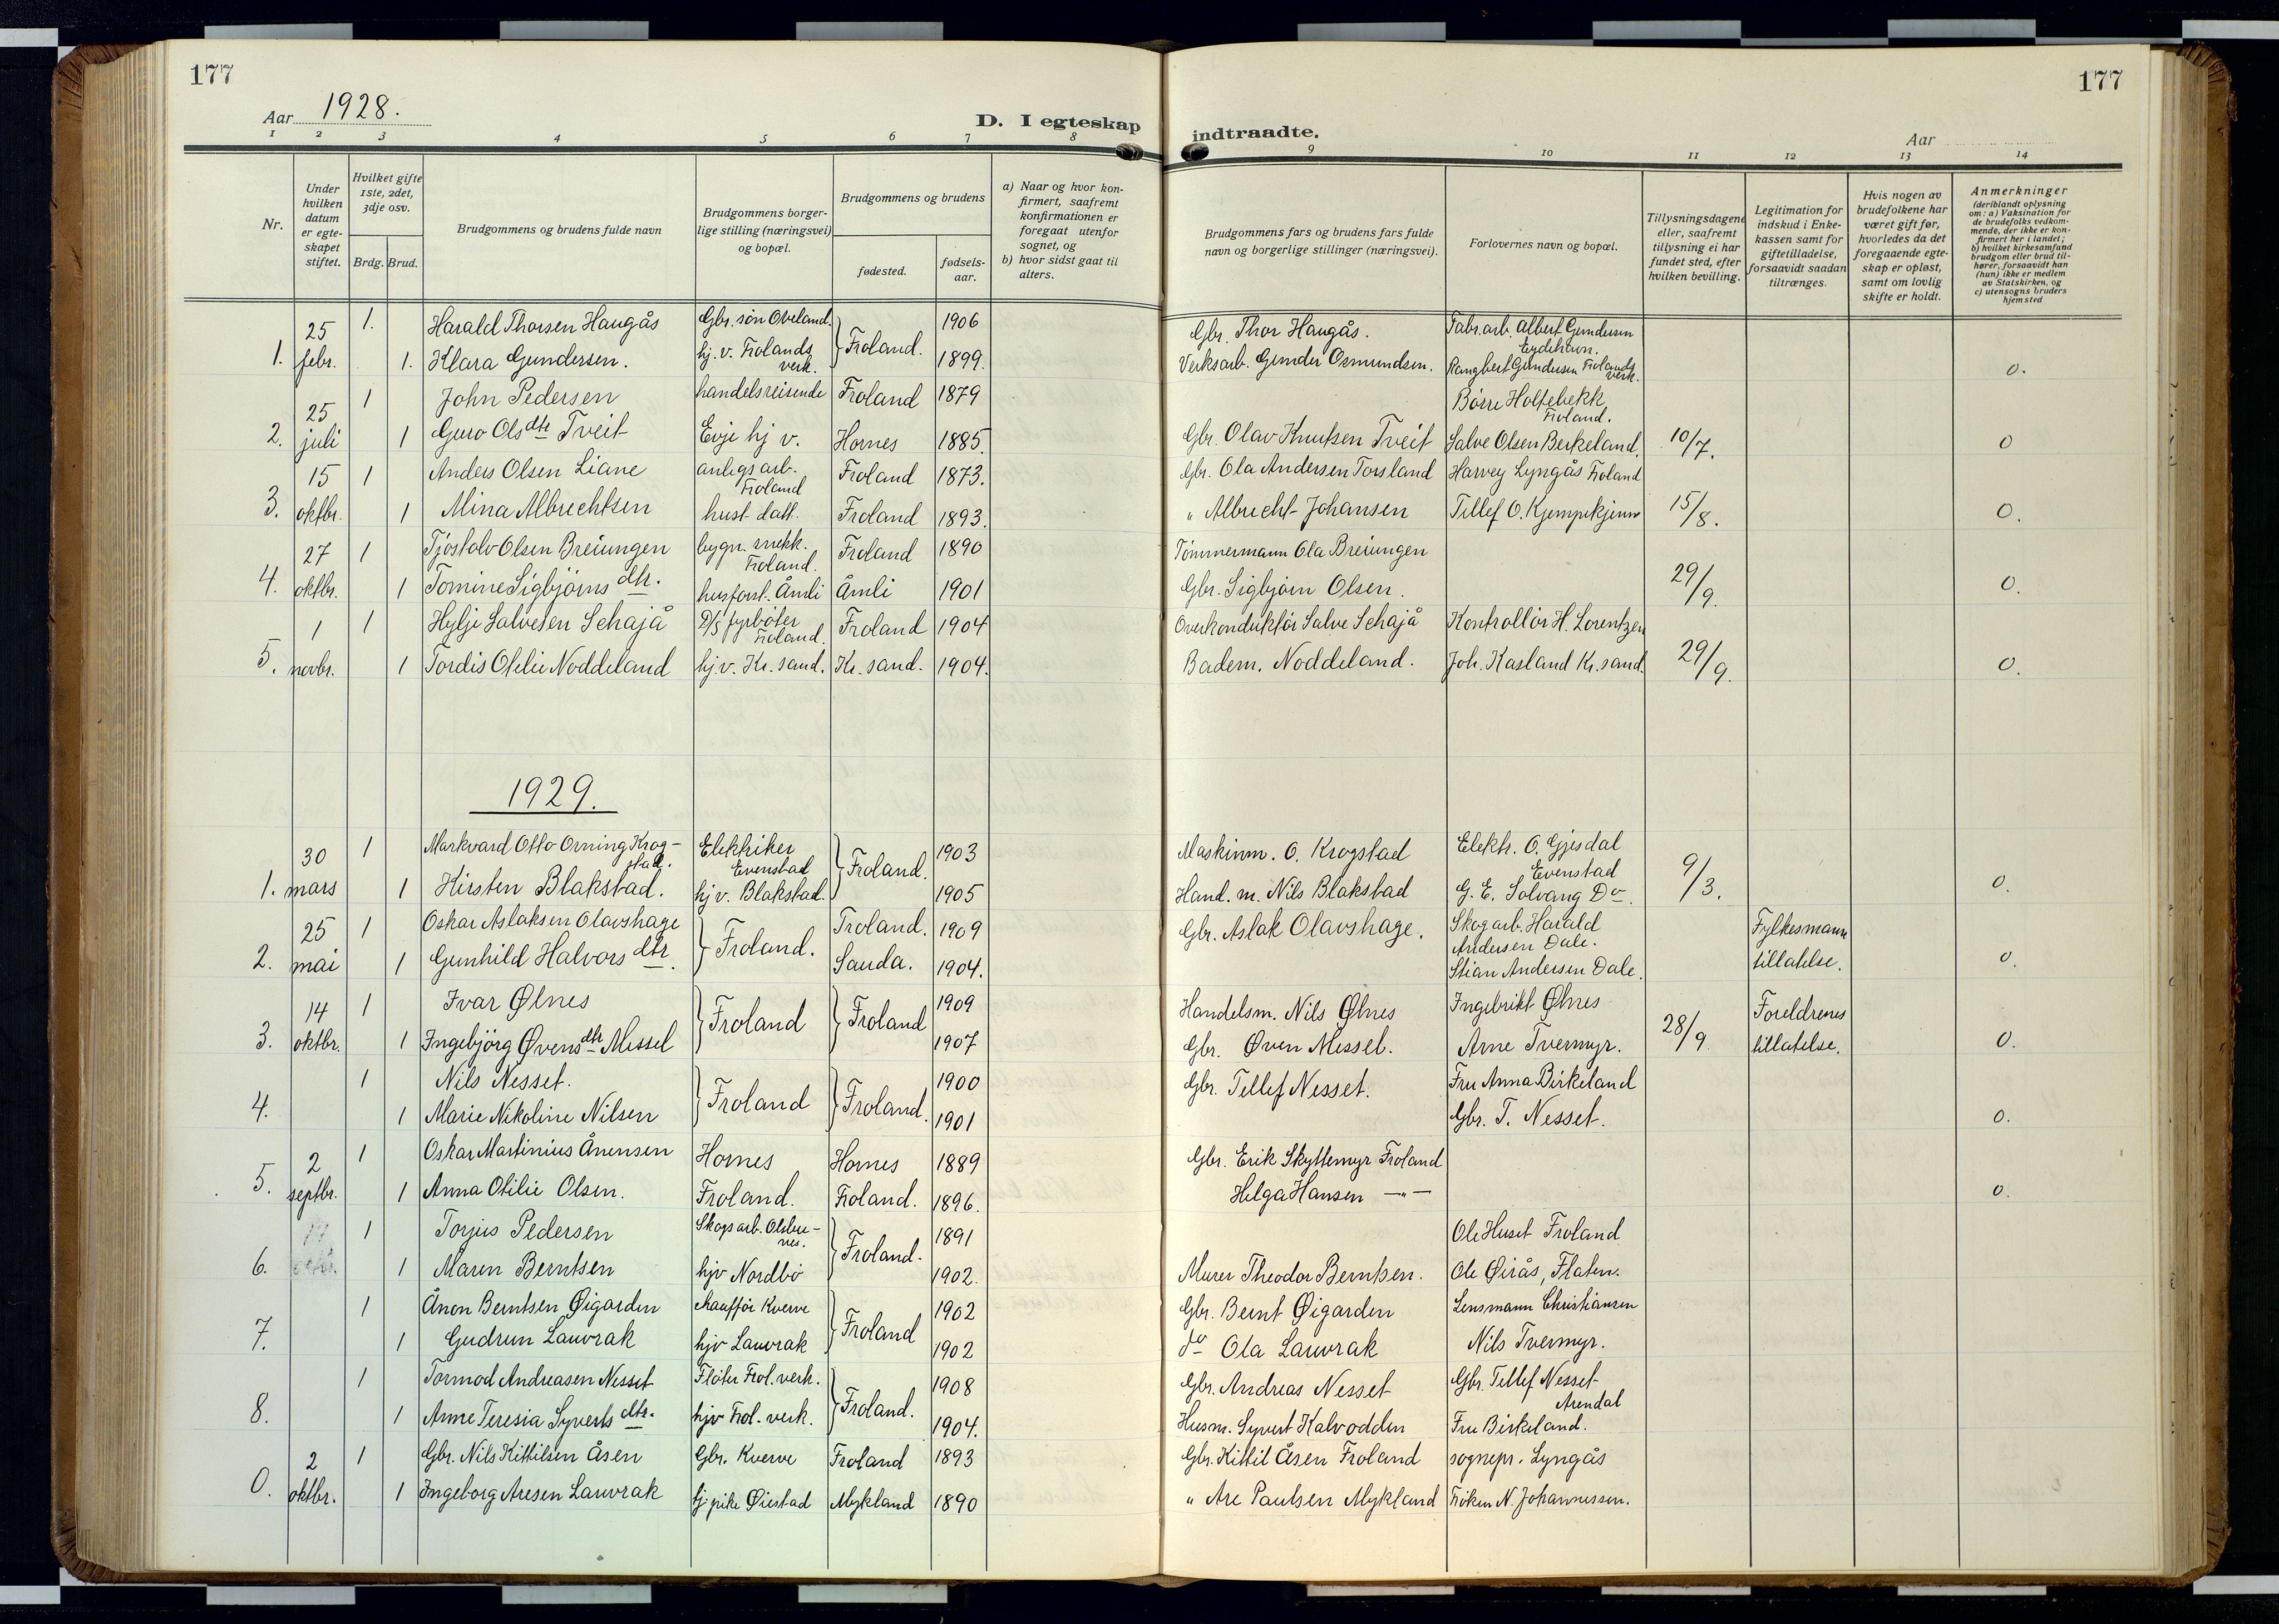 177
177
Aar 1928.
D. I egteskap
indtraadte.
Aar
1 2 3 4 5 6 7 8 9 10 11 12 13 14
Nr.
Under hvilken datum er egteskapet stiftet.
Hvilket gifte 1ste, 2det, 3dje osv.
Brdg. Brud.
Brudgommens og brudens fulde navn
Brudgommens borgerlige stilling (næringsvei) og bopæl.
Brudgommens og brudens
fødested.
fødselsaar.
a) Naar og hvor konfirmert, saafremt konfirmationen er foregaat utenfor sognet, og
b) hvor sidst gaat til alters.
Brudgommens fars og brudens fars fulde navn og borgerlige stillinger (næringsvei).
Forlovernes navn og bopæl.
Tillysningsdagene eller, saafremt tillysning ei har fundet sted, efter hvilken bevilling.
Legitimation for indskud i Enkekassen samt for giftetilladelse, forsaavidt saadan tiltrænges.
Hvis nogen av brudefolkene har været gift før, hvorledes da det foregaaende egteskap er opløst, samt om lovlig skifte er holdt.
Anmerkninger (deriblandt oplysning om: a) Vaksination for de brudefolks vedkommende, der ikke er konfirmert her i landet; b) hvilket kirkesamfund brudgom eller brud tilhører, forsaavidt han (hun) ikke er medlem av Statskirken, og c) utensogns bruders hjemsted
25 1. Harald Thorsen Haugås Gbr. søn Oveland. Froland. 1906 Gbr. Thor Haugås. Fabr.arb. Albert Gundersen Eydehavn.
1. febr. 1. Klara Gundersen. hj. v. Frolands verk. 1899. Verksarb. Gunder Osmundsen. Rangbert Gundersen Frolands verk. 0.
25 1 John Pedersen handelsreisende Froland 1879 Børre Holtebekk Froland.
2. juli 1 Guro Olsdtr Tveit Evje hj v. Hornes 1885. Gbr. Olav Knutsen Tveit Salve Olsen Berkeland. 10/7. 0
15 1 Anders Olsen Liane anlegsarb. Froland Froland 1873. Gbr. Ola Andersen Torsland Harvey Lyngås Froland
3. oktbr. 1 Mina Albrechtsen hust. datt. Froland 1893. " Albrecht Johansen Tellef O. Kjempekjenn 15/8. 0.
27 1 Tjostolv Olsen Breiungen bygn. snekk. Froland. Froland 1890 Tömmermann Ola Breiungen
4. oktbr. 1 Tomine Sigbjørns dtr. husforst. Åmli Åmli 1901 Gbr. Sigbjørn Olsen. 29/9. 0.
1 1 Hylje Salvesen Schajå D/S fyrböter Froland. Froland 1904 Overkonduktör Salve Schajå Kontrollör H. Lorentzen
5. novbr. 1 Tordis Otelie Noddeland hj. v. Kr. sand. Kr. sand. 1904. Badem. Noddeland. Joh. Kasland Kr. sand. 29/9. 0.
1929.
30 1 Markvard Otto Orning Krogstad. Elektriker Evenstad Froland. 1903 Maskinm. O. Krogstad Elektr. O. Gjesdal Evenstad
1. mars 1 Kirsten Blakstad. hj v. Blakstad. 1905 Hand. m. Nils Blakstad G. E. Solvang Do. 9/3. 0.
25 1 Oskar Aslaksen Olavshage Froland. Froland. 1909 Gbr. Aslak Olavshage. Skogarb. Harald Andersen Dale. Fylkesmann
2. mai 1 Gunhild Halvors dtr. Sauda. 1904. Stian Andersen Dale. tillatelse. 0.
14 1 Ivar Ølnes Froland Froland 1909 Handelsm. Nils Ølnes Ingebrikt Ølnes Foreldrenes
3. oktbr. 1 Ingebjörg Øvensdtr Messel 1907 Gbr. Øven Messel. Arne Tvermyr. 28/9 tillatelse. 0.
1 Nils Nesset. Froland Froland. 1900 Gbr. Tellef Nesset. Fru Anna Birkeland
4. 1 Marie Nikoline Nilsen 1901 Gbr. T. Nesset. 0.
2 1 Oskar Martinius Ånensen Hornes Hornes 1889 Gbr. Erik Skyttemyr Froland
5. septbr. 1 Anna Otilie Olsen. Froland. Froland. 1896. Helga Hansen —"— 0.
1 Torjus Pedersen Skogsarb. Froland. 1891 Ole Huset Froland
6. 1 Maren Berntsen hjv Nordbö 1902. Murer Theodor Berntsen. Ole Øirås, Flaten.
1 Ånon Berntsen Øigarden chaufför Kverve Froland 1902 Gbr. Bernt Øigarden Lensmann Christiansen
7. 1 Gudrun Lauvrak hjv Lauvrak 1902 do Ola Lauvrak Nils Tvermyr.
1 Tormod Andreasen Nesset Fløter Frol. verk. Froland. 1908 Gbr. Andreas Nesset Gbr. Tellef Nesset Arendal
8. 1 Anne Teresia Syverts dtr. hjv Frol. verk. 1904. Husm. Syvert Kalvodden Fru Birkeland.
2 1 Gbr. Nils Kittilsen Åsen Gbr. Kverve Froland 1893 Gbr. Kittil Åsen Froland sognepr. Lyngås
0. oktbr. 1 Ingeborg Aresen Lauvrak hj pike Øiestad Mykland 1890 " Are Paulsen Mykland Fröken N. Johannessen.